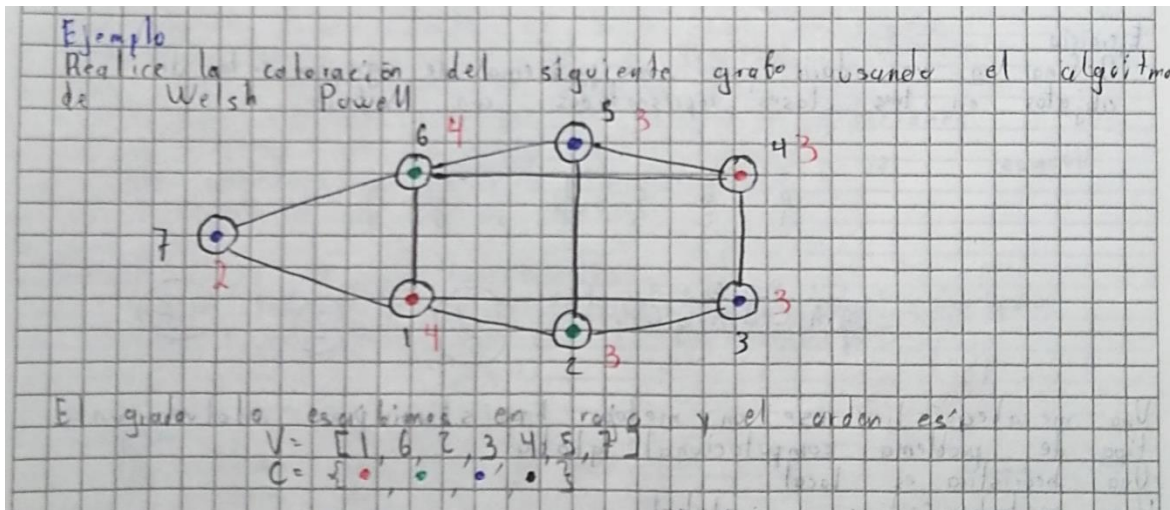 Ejemplo
Realice la coloración del siguiente grafo usando el algoitmo
de Welsh Powell
5 3
6 4
4 3
7
2
3
1 4
2 3
3
El grado lo esqribimos en rojo y el orden es:
V= [1, 6, 2, 3, 4, 5, 7]
C= { , , , }